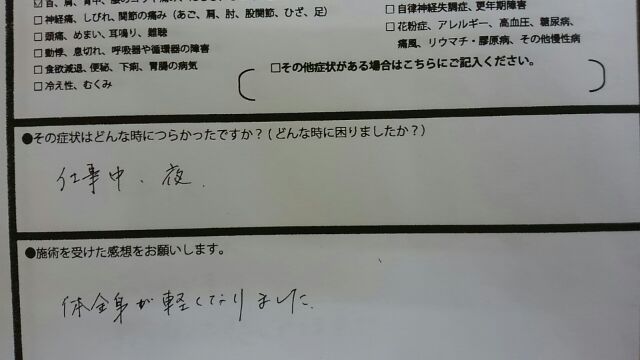 ☑首、肩、背中、腰のコリ、痛み、
□神経痛、しびれ、関節の痛み（あご、肩、肘、股関節、ひざ、足）
□頭痛、めまい、耳鳴り、難聴
□動悸、息切れ、呼吸器や循環器の障害
□食欲減退、便秘、下痢、胃腸の病気
□冷え性、むくみ
□自律神経失調症、更年期障害
□花粉症、アレルギー、高血圧、糖尿病、
痛風、リウマチ・膠原病、その他慢性病
□その他症状がある場合はこちらにご記入ください。
●その症状はどんな時につらかったですか？(どんな時に困りましたか？)
仕事中、夜、
●施術を受けた感想をお願いします。
体全身が軽くなりました。